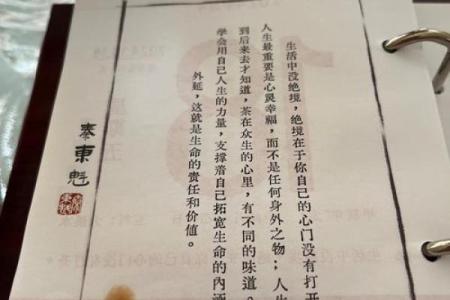 生活中没绝境，绝境在于你自己的心门没有打开
人生最重要是心灵幸福，而不是任何身外之物；人生
到后来去才知道，茶在众生的心里，有不同的味道。
学会用自己人生的力量，支撑着自己拓宽生命的内涵
外延，这就是生命的责任和价值。
秦東魁